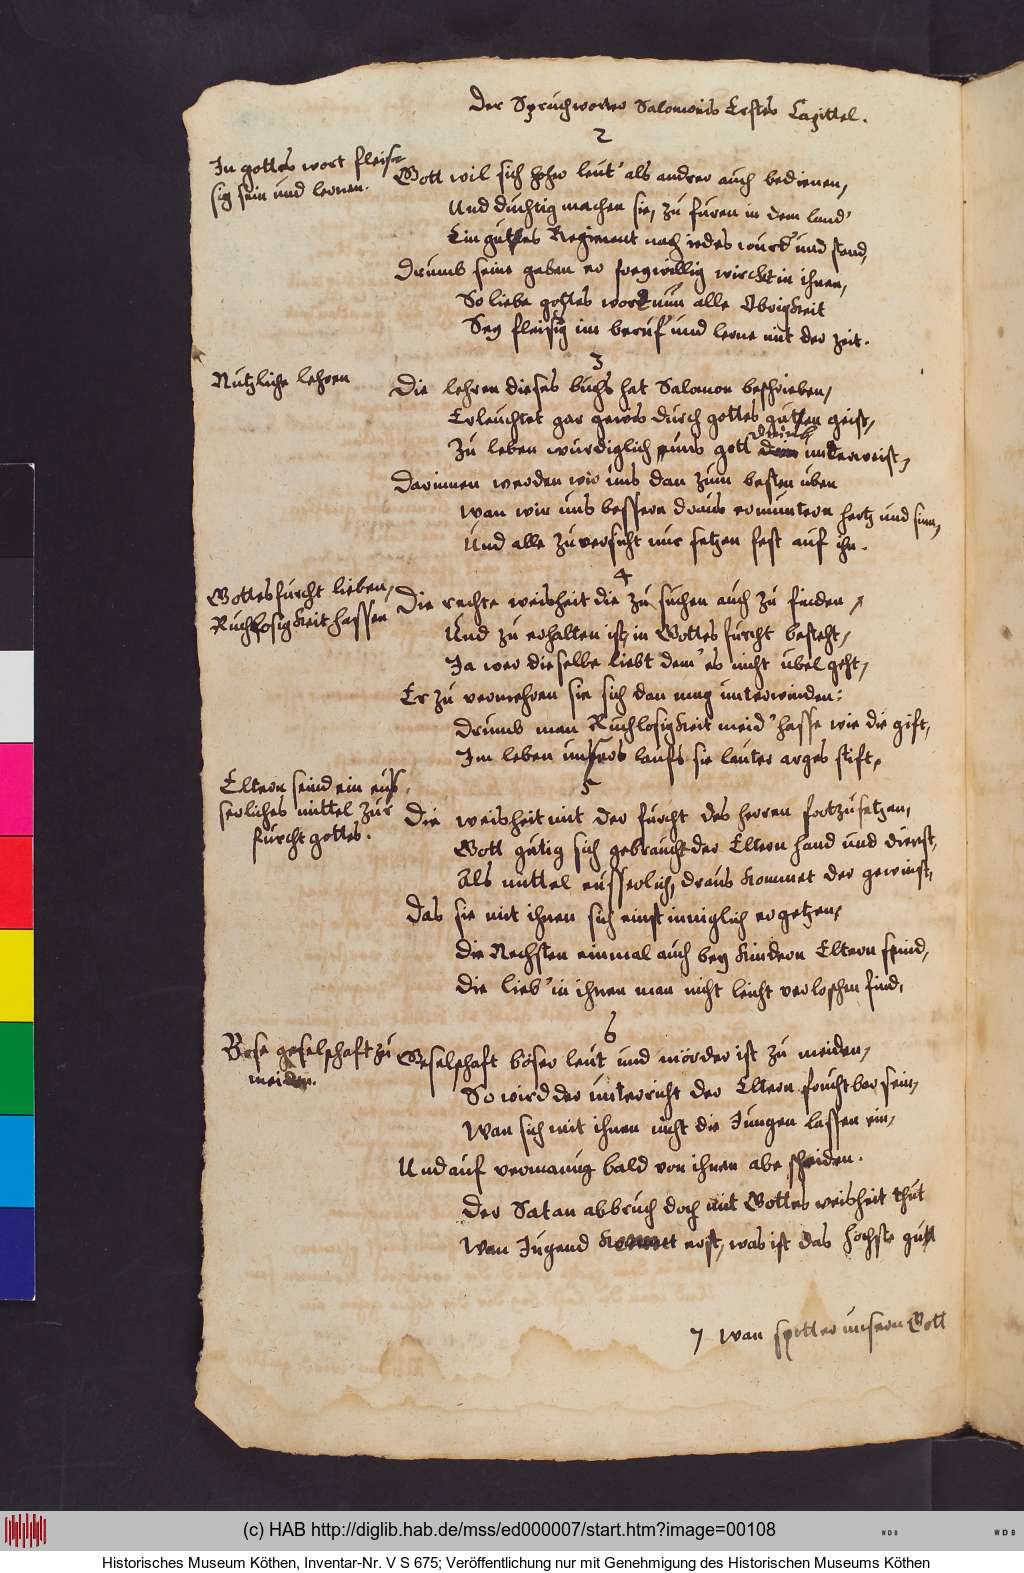 Der Spruchworter Salomonis Erstes Capittel.
2
In gottes wort fleis-
sig sein und lernen.
Gott wil sich hoher leut' als andrer auch bedienen,
Und duchtig machen sie, zu furen in dem land'
Ein guttes Regiement nach iedes wurd' und stand,
Drumb seine gaben er freywillig wircket in ihnen,
So liebe gottes wort nun alle Obrigkeit
Sey fleisig im beruf' und lerne mit der zeit.
3
Nutzliche lehren
Die lehren dieses buchs hat Salomon beschrieben,
Erleuchtet gar gewis durch gottes gutten geist,
Zu leben wurdiglich uns gott drinnen unterweist,
Darinnen werden wir uns dan zum besten uben
Wan wir uns bessern draus ermuntern hertz und sinn,
Und alle zuversicht nur setzen fest auf ihn.
4
Gottesfurcht lieben,
Ruchlosigkeit hassen
Die rechte weisheit die zu suchen auch zu finden,
Und zu erhalten ist, in Gottes furcht besteht,
Ja wer dieselbe liebt dem' es nicht ubel geht,
Er zu vermehren sie sich dan mag unterwinden:
Drumb man Ruchlosigkeit meid' hasse wie die gift,
Im leben unsers laufs sie lauter arges stift,
5
Eltern seind ein eus-
serliches mittel zur
furcht gottes.
Die weisheit mit der furcht des herren fortzusetzen,
Gott gutig sich gebraucht der Eltern hand und dienst,
Als mittel eusserlich, draus kommet der gewinst,
Das sie mit ihnen sich einst inniglich ergetzen,
Die Nechsten einmal auch bey kindern Eltern seind,
Die lieb' in ihnen man nicht leicht verloschen find,
6
Bose geselschaft zu
meiden.
Geselschaft böser leut und mörder ist zu meiden,
So wird der unterricht der Eltern fruchtbar sein,
Wan sich mit ihnen nicht die Jungen lassen ein,
Und auf vermanung bald von ihnen abe scheiden.
Der Satan abbruch doch mit Gottes weisheit thut
Wan Jugend kommet erst, was ist das hochste gutt
7 Wan spotter unsern Gott
(c) HAB http://diglib.hab.de/mss/ed000007/start.htm?image=00108
WDB
WDB
Historisches Museum Köthen, Inventar-Nr. V S 675; Veröffentlichung nur mit Genehmigung des Historischen Museums Köthen